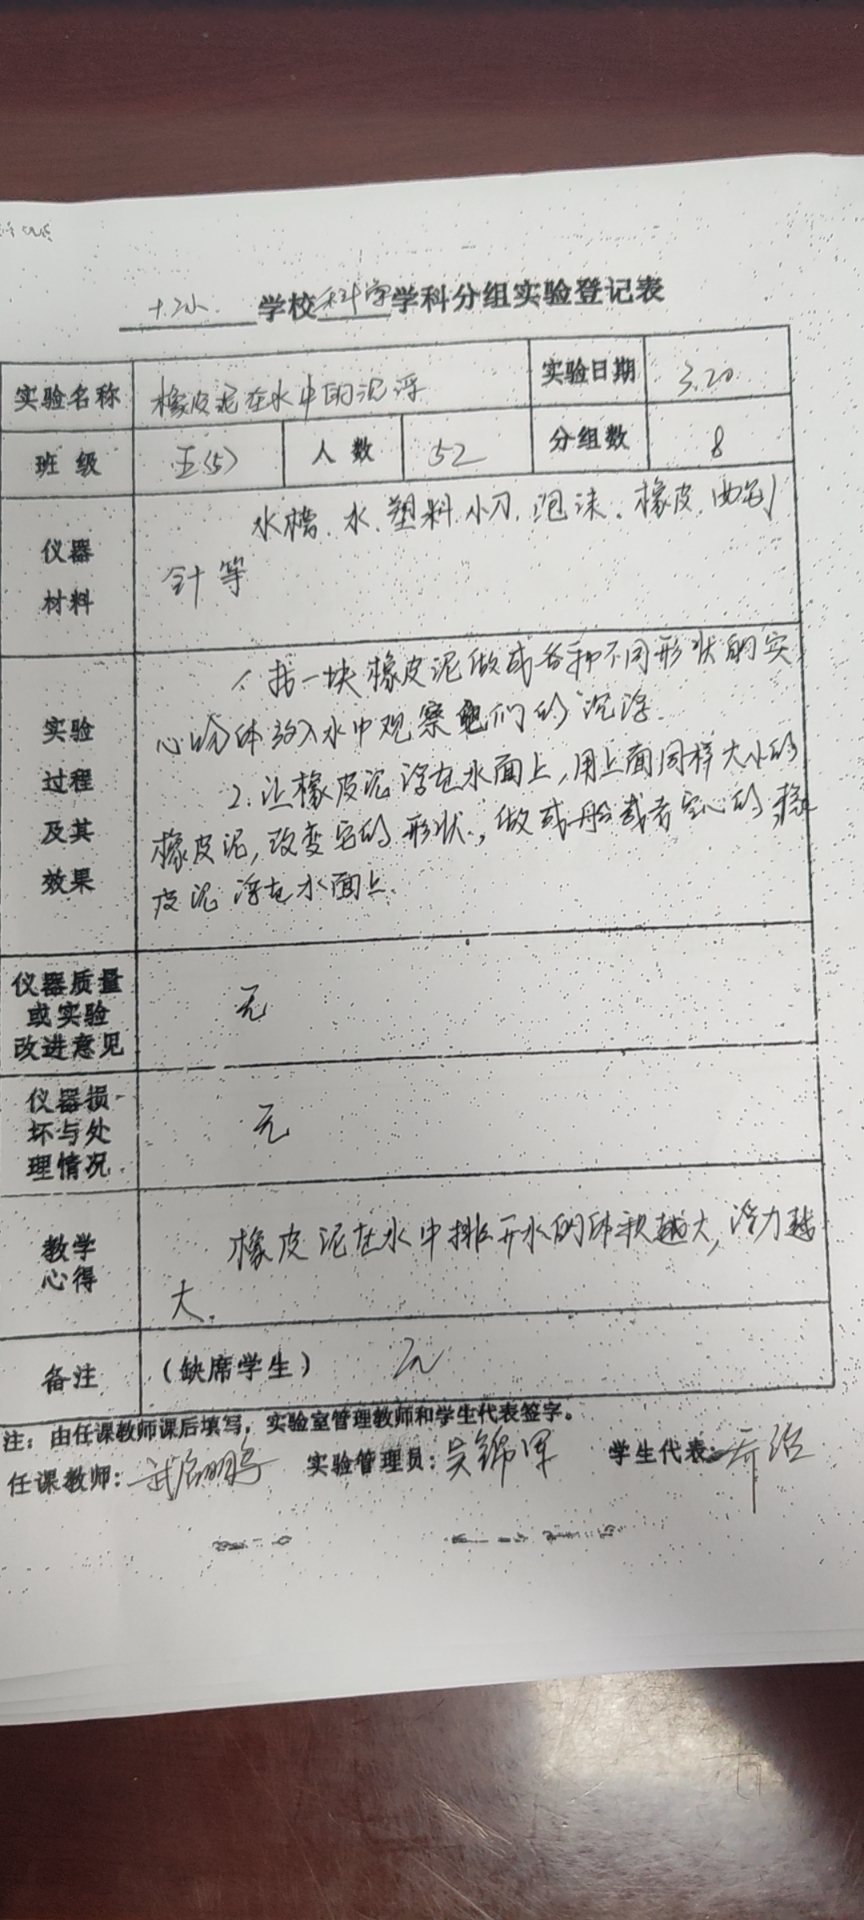 十二小 学校科学学科分组实验登记表
实验名称 橡皮泥在水中的沉浮 实验日期 3.20
班 级 五(5) 人 数 52 分组数 8
仪器材料 水槽.水.塑料小刀.泡沫.橡皮.回形
针等
实验过程及其效果 1.拈一块橡皮泥做成各种不同形状的实
心物体放入水中观察它们的沉浮.
2.让橡皮泥浮在水面上,用上面同样大小的
橡皮泥,改变它的形状,做成船或者空心的橡
皮泥浮在水面上.
仪器质量或实验改进意见 无
仪器损坏与处理情况 无
教学心得 橡皮泥在水中排开水的体积越大,浮力越
大.
备注 (缺席学生) 无
注:由任课教师课后填写,实验室管理教师和学生代表签字。
任课教师: 实验管理员:吴锦军 学生代表: